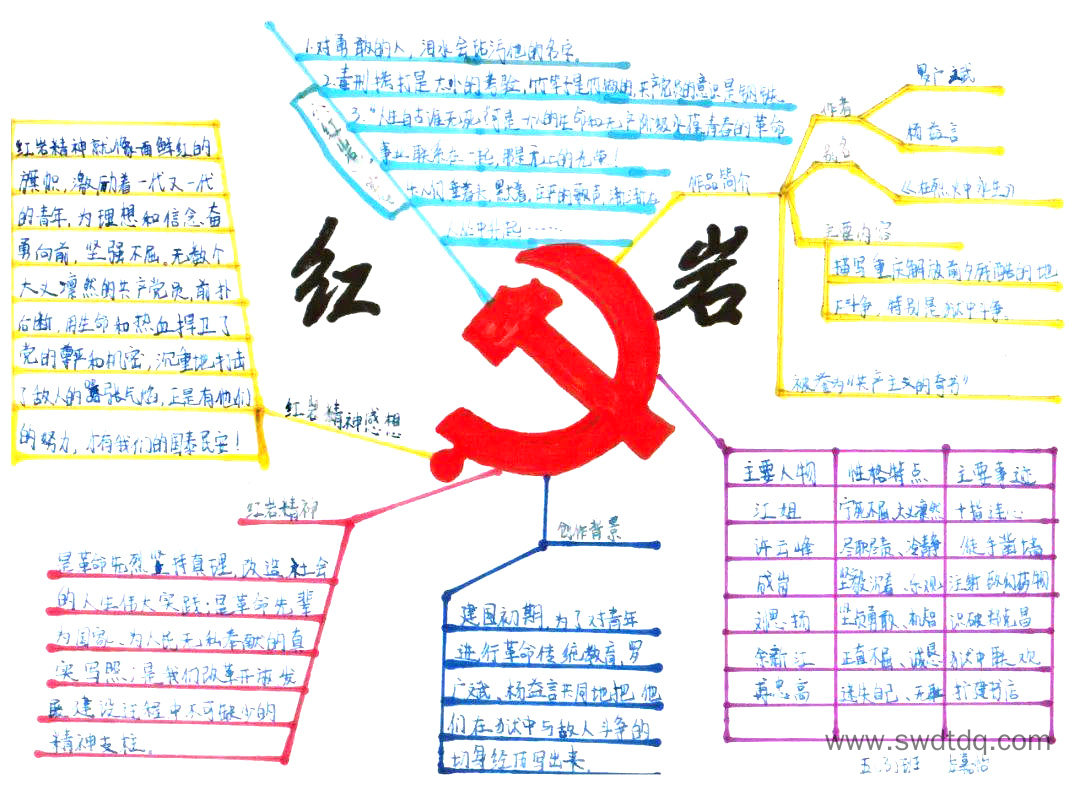 红岩
1.对勇敢的人，泪水会玷污他的名字。
2.毒刑拷打是太小的考验，竹签子是竹做的，共产党员的意志是钢铁
3."人生自古谁无死？可是一个人的生命和无产阶级永葆青春的革命
事业联系在一起，那是无上的光荣！
作品简介
作者
罗广斌
杨益言
别名
《在烈火中永生》
主要内容
描写重庆解放前夕残酷的地
下斗争，特别是狱中斗争。
被誉为"共产主义的奇书"
红岩精神感想
红岩精神就像一面鲜红的
旗帜，激励着一代又一代
的青年，为理想和信念奋
勇向前，坚强不屈。无数个
大义凛然的共产党员，前扑
后断，用生命和热血捍卫了
党的尊严和机密，沉重地打击
了敌人的嚣张气焰，正是有他们
的努力，才有我们的国泰民安！
红岩精神
是革命先烈坚持真理，改造社会
的人生伟大实践；是革命先辈
为国家、为人民无私奉献的真
实写照；是我们改革开放发
展建设征程中不可缺少的
精神支柱。
创作背景
建国初期，为了对青年
进行革命传统教育，罗
广斌、杨益言共同地把他
们在狱中与敌人斗争的
切身经历写出来。
主要人物 性格特点 主要事迹
江姐 宁死不屈、大义凛然 十指连心
许云峰 尽职尽责、冷静 徒手凿墙
成岗 坚毅沉着、乐观 注射致幻药物
刘思扬 坚贞勇敢、机智 识破郑克昌
余新江 正直不屈、诚恳 狱中联欢
甫志高 迷失自己、无耻 扩建书店
www.swdtdq.com